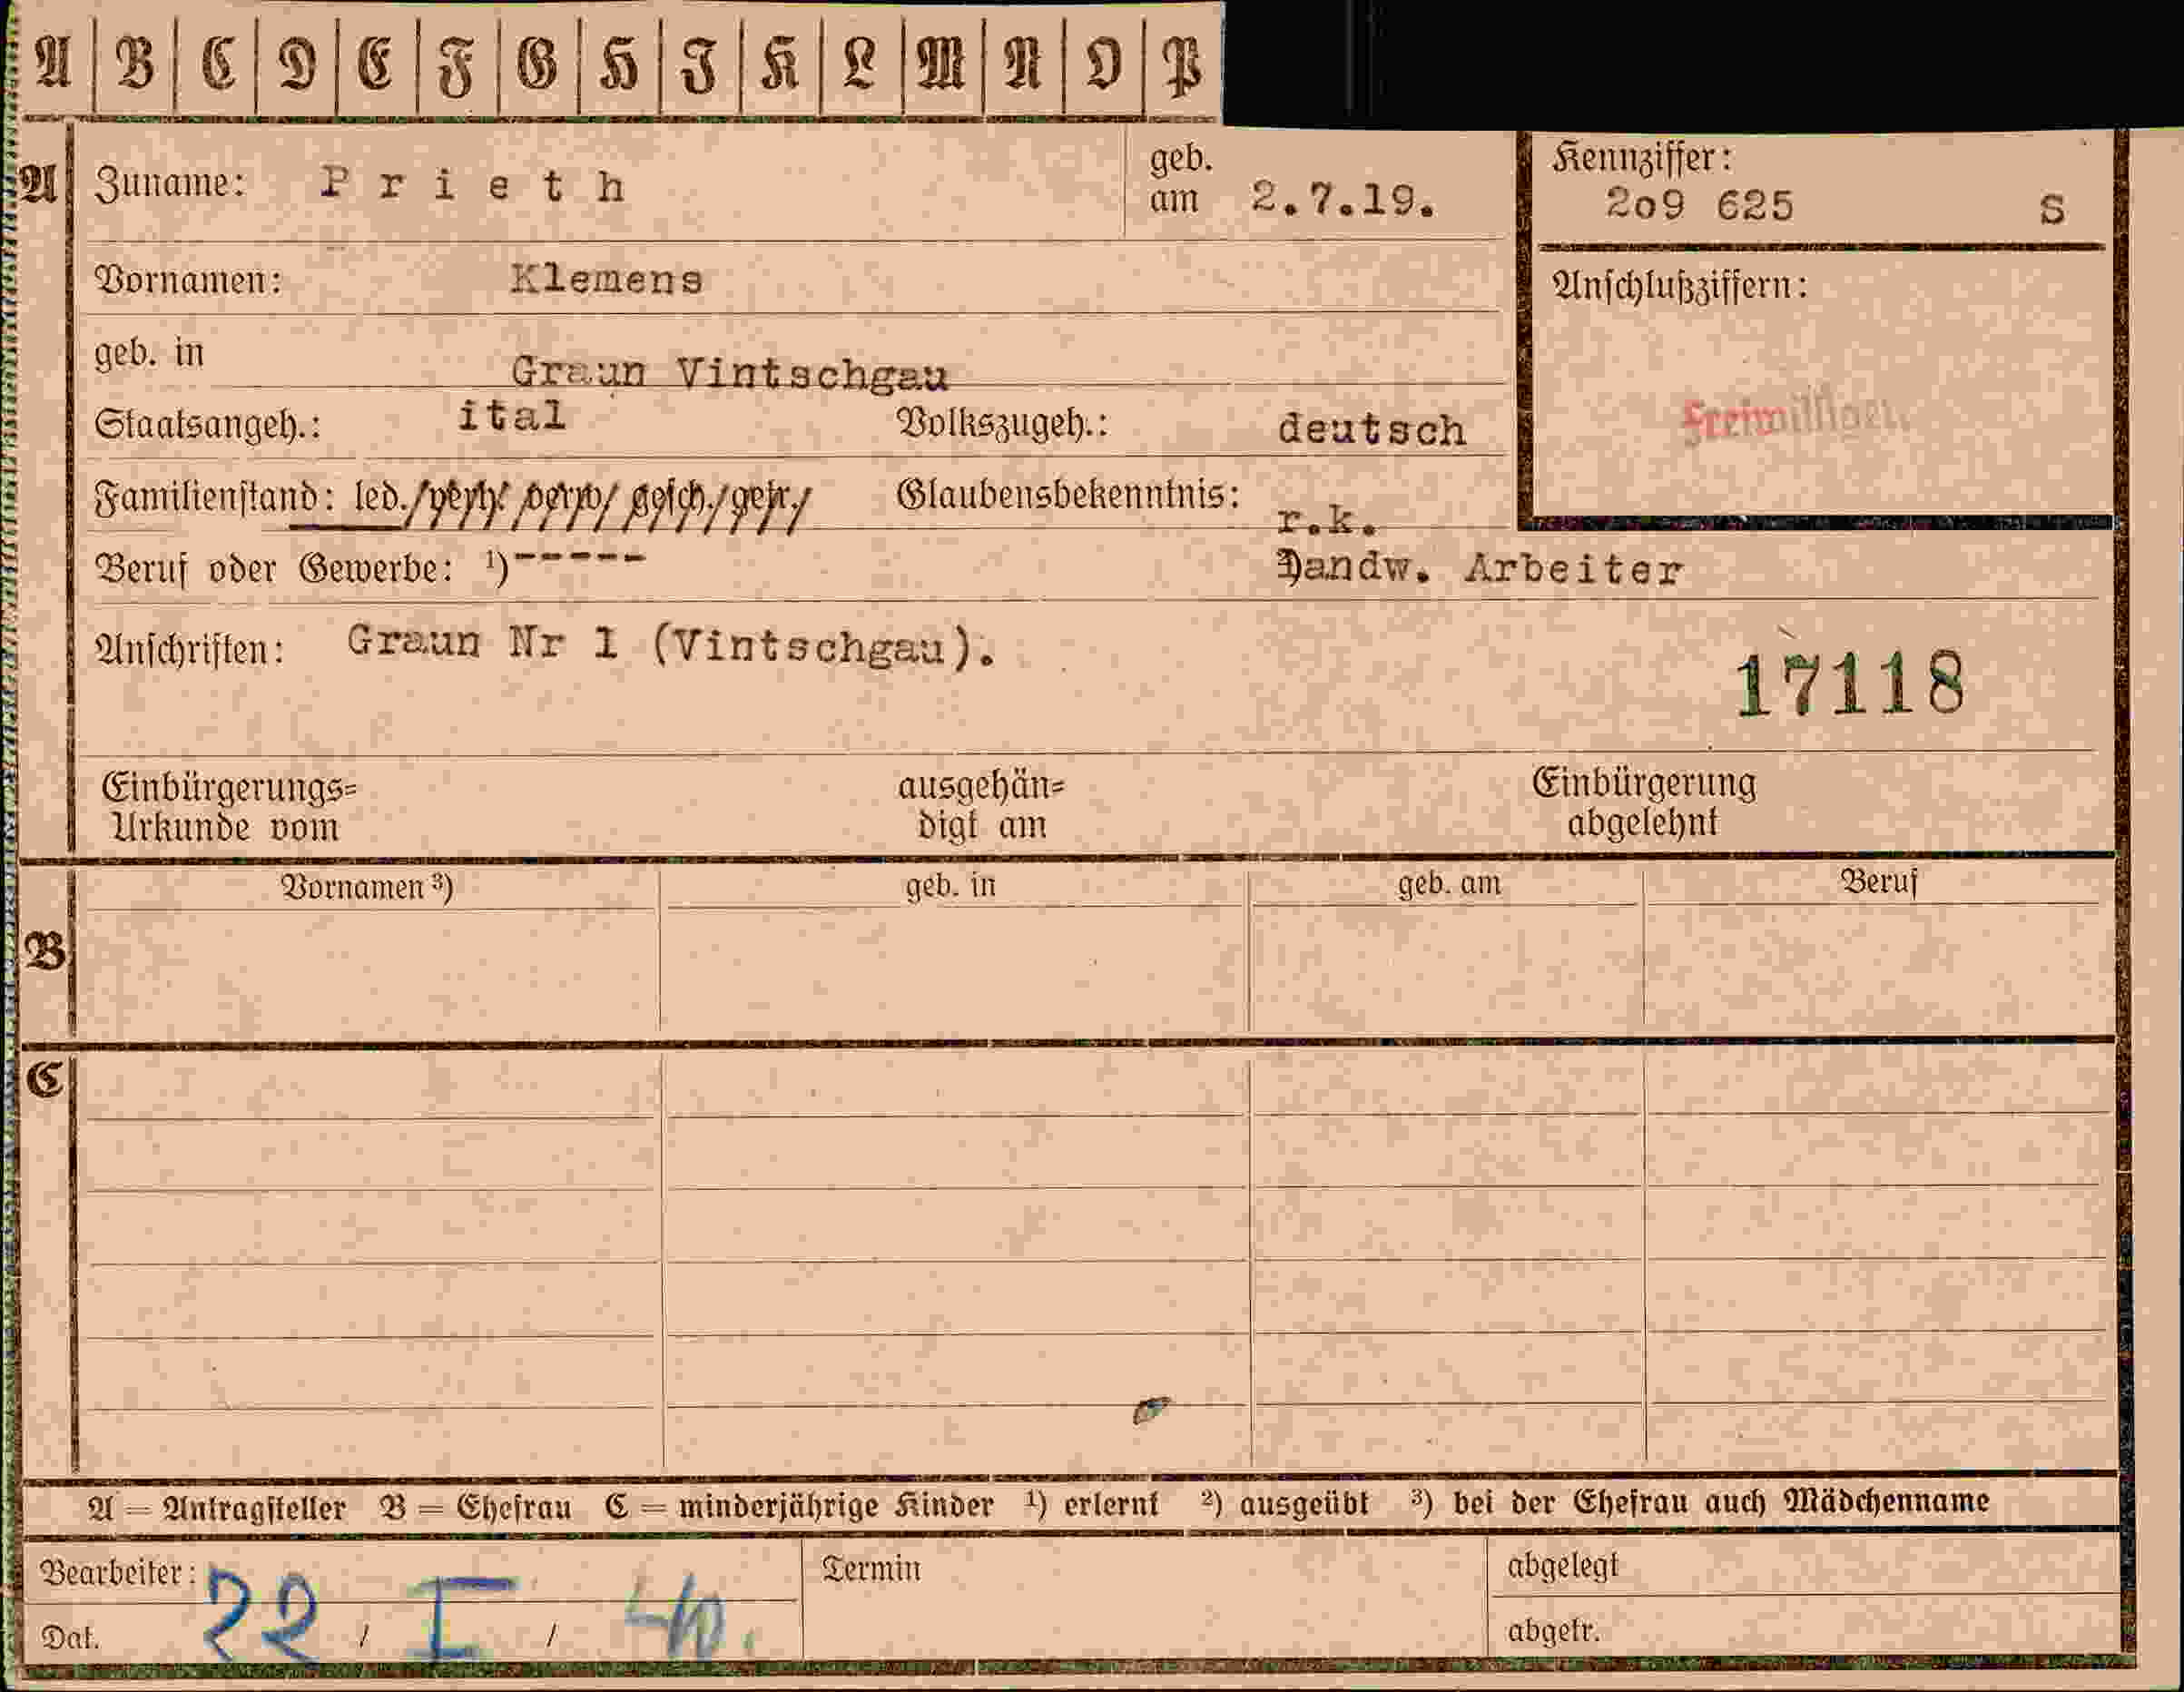 A B C D E F G H I K L M N O P
A Zuname: Prieth geb. am 2.7.19. Kennziffer: 2o9 625 S
Vornamen: Klemens Anschlußziffern:
geb. in Graun Vintschgau
Staatsangeh.: ital Volkszugeh.: deutsch Freiwilliger
Familienstand: led./verh./verw./gesch./getr./ Glaubensbekenntnis: r.k.
Beruf oder Gewerbe: ¹)----- ²)andw. Arbeiter
Anschriften: Graun Nr 1 (Vintschgau).
17118
Einbürgerungs= ausgehän= Einbürgerung
Urkunde vom digt am abgelehnt
Vornamen ³) geb. in geb. am Beruf
B
C
A = Antragsteller B = Ehefrau C = minderjährige Kinder ¹) erlernt ²) ausgeübt ³) bei der Ehefrau auch Mädchenname
Bearbeiter: Termin abgelegt
Dat. 22 / I / 40. abgetr.